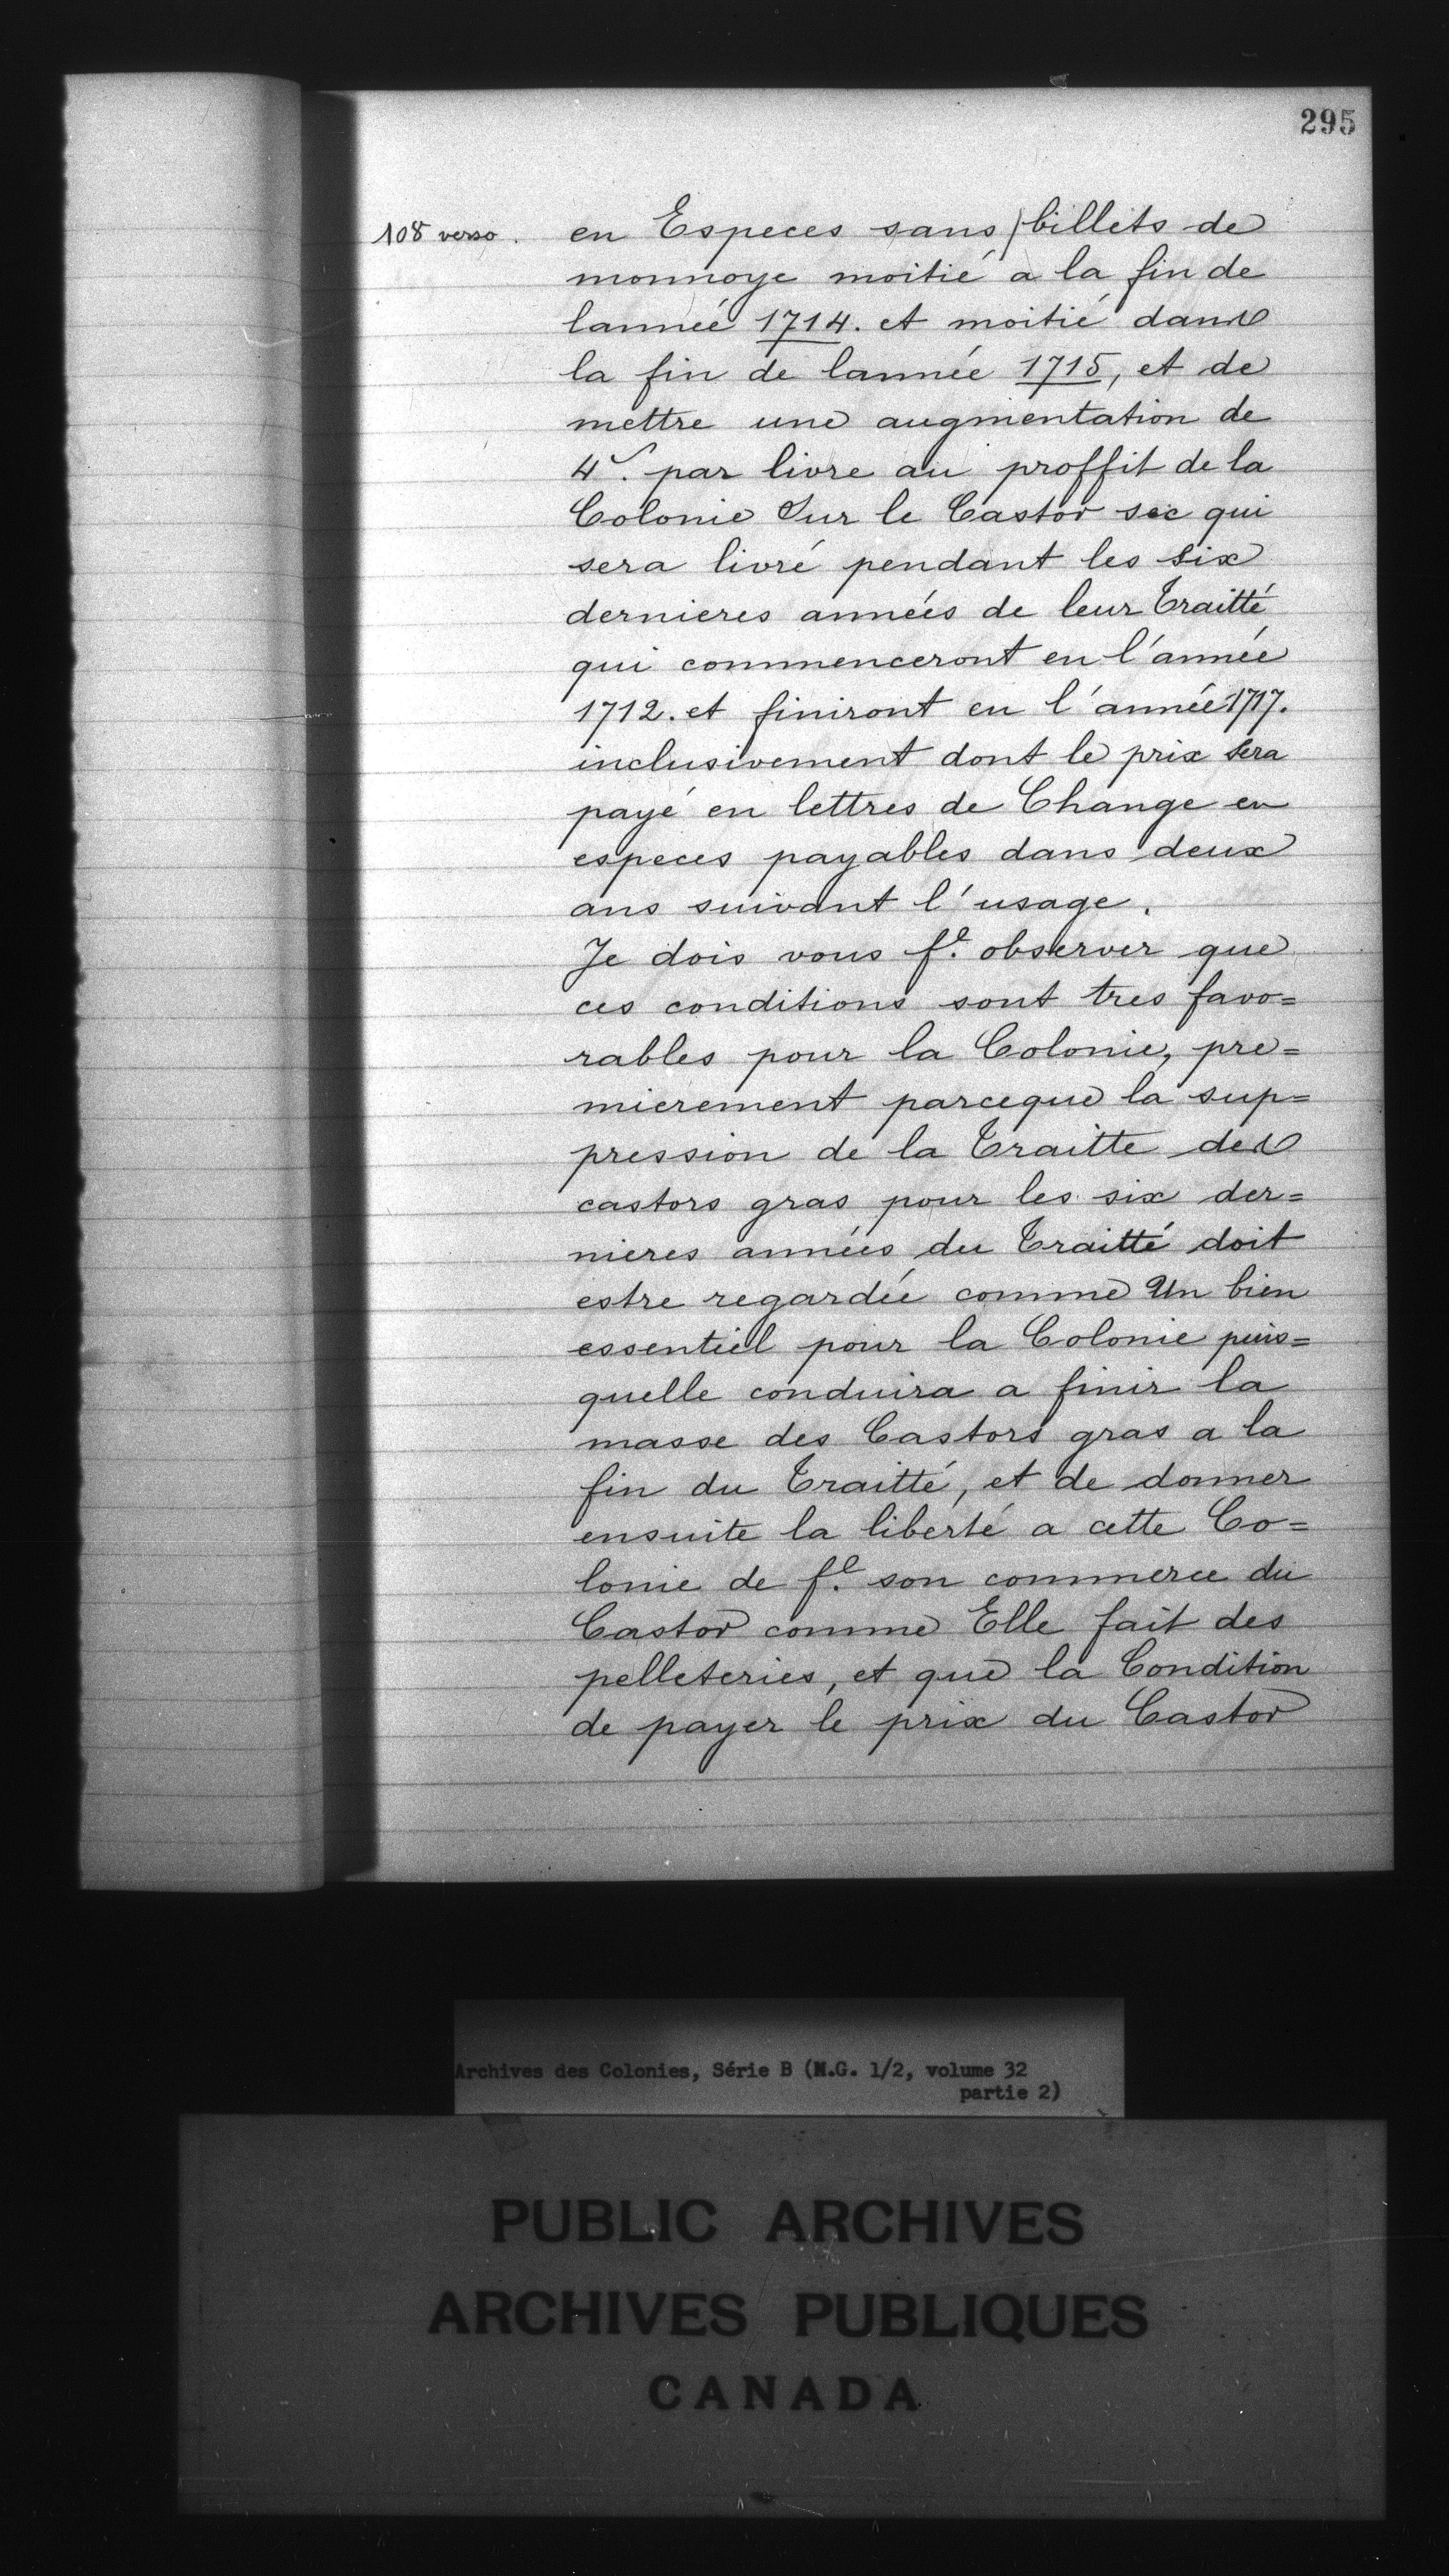 295
108 verso. en Especes sans / billets de
monnoye moitié a la fin de
lannée 1714. et moitié dans
la fin de lannée 1715, et de
mettre une augmentation de
4s. par livre au proffit de la
Colonie Sur le Castor sec qui
sera livré pendant les Six
dernieres années de leur Traitté
qui commenceront en l'année
1712. et finiront en l'année 1717.
inclusivement dont le prix Sera
payé en lettres de Change en
especes payables dans deux
ans suivant l'usage.
Je dois vous fe. observer que
ces conditions sont tres favo=
rables pour la Colonie, pre=
mierement parceque la sup=
pression de la Traitte des
castors gras pour les six der=
nieres années du Traitté doit
estre regardée comme Un bien
essentiel pour la Colonie puis=
quelle conduira a finir la
masse des Castors gras a la
fin du Traitté, et de donner
ensuite la liberté a cette Co=
lonie de fe. son commerce du
Castor comme Elle fait des
pelleteries, et que la Condition
de payer le prix du Castor
Archives des Colonies, Série B (M.G. 1/2, volume 32
partie 2)
PUBLIC ARCHIVES
ARCHIVES PUBLIQUES
CANADA